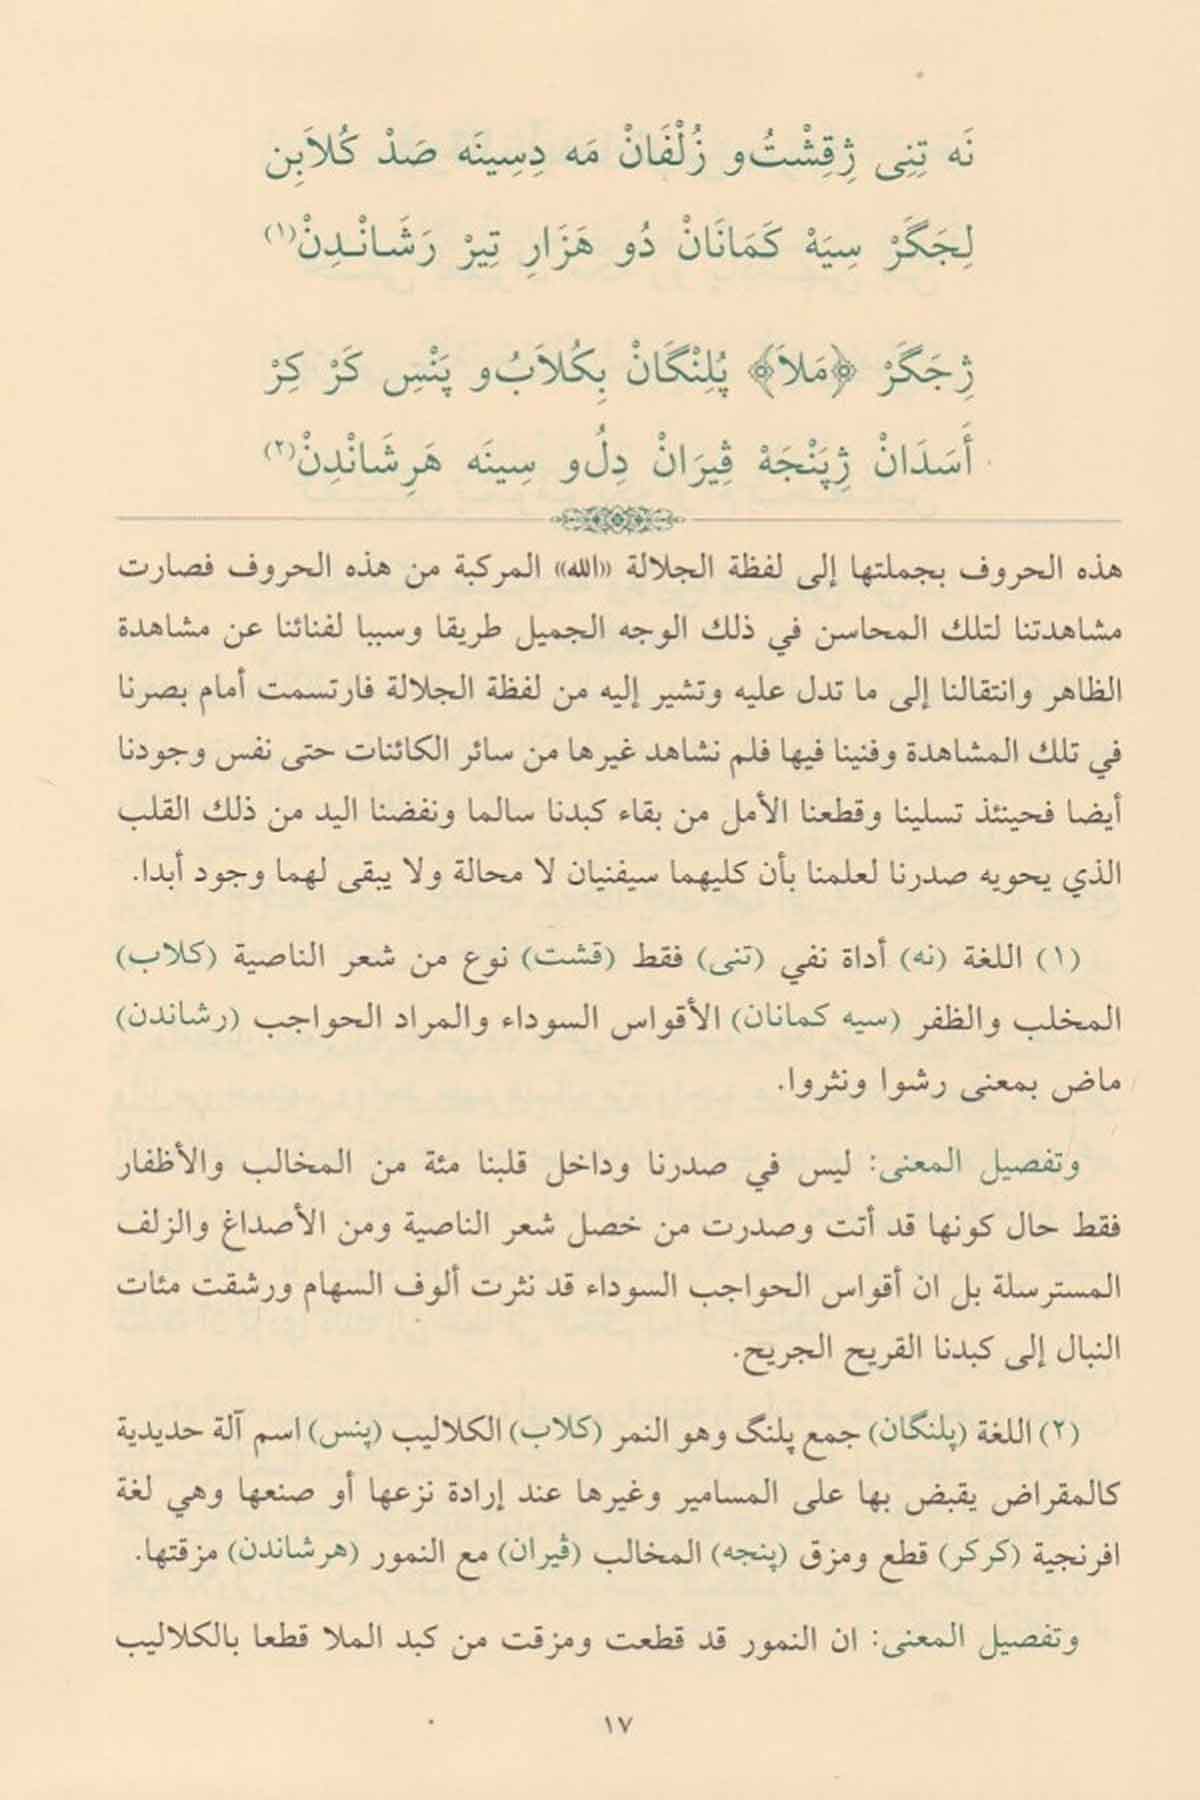 نَه تِنِى ژِقِشْتُ‌و زُلْفَانْ مَه دِسِينَه صَدْ كُلاَبِن
لِجَگَرْ سِيَهْ كَمَانَانْ دُو هَزَارِ تِيرْ رَشَانْدِنْ(١)
ژِجَگَرْ ﴿مَلاَ﴾ پُلِنْگَانْ بِكُلاَبُ‌و پَنْسِ كَرْ كِرْ
أَسَدَانْ ژِپَنْجَهْ ڤِيرَانْ دِلُ‌و سِينَه هَرِشَانْدِنْ(٢)
هذه الحروف بجملتها إلى لفظة الجلالة «الله» المركبة من هذه الحروف فصارت
مشاهدتنا لتلك المحاسن في ذلك الوجه الجميل طريقا وسببا لفنائنا عن مشاهدة
الظاهر وانتقالنا إلى ما تدل عليه وتشير إليه من لفظة الجلالة فارتسمت أمام بصرنا
في تلك المشاهدة وفنينا فيها فلم نشاهد غيرها من سائر الكائنات حتى نفس وجودنا
أيضا فحينئذ تسلينا وقطعنا الأمل من بقاء كبدنا سالما ونفضنا اليد من ذلك القلب
الذي يحويه صدرنا لعلمنا بأن كليهما سيفنيان لا محالة ولا يبقى لهما وجود أبدا.
(١) اللغة (نه) أداة نفي (تنى) فقط (قشت) نوع من شعر الناصية (كلاب)
المخلب والظفر (سيه كمانان) الأقواس السوداء والمراد الحواجب (رشاندن)
ماض بمعنى رشوا ونثروا.
وتفصيل المعنى: ليس في صدرنا وداخل قلبنا مئة من المخالب والأظفار
فقط حال كونها قد أتت وصدرت من خصل شعر الناصية ومن الأصداغ والزلف
المسترسلة بل ان أقواس الحواجب السوداء قد نثرت ألوف السهام ورشقت مئات
النبال إلى كبدنا القريح الجريح.
(٢) اللغة (پلنگان) جمع پلنگ وهو النمر (كلاب) الكلاليب (پنس) اسم آلة حديدية
كالمقراض يقبض بها على المسامير وغيرها عند إرادة نزعها أو صنعها وهي لغة
افرنجية (كركر) قطع ومزق (پنجه) المخالب (ڤيران) مع النمور (هرشاندن) مزقتها.
وتفصيل المعنى: ان النمور قد قطعت ومزقت من كبد الملا قطعا بالكلاليب
١٧